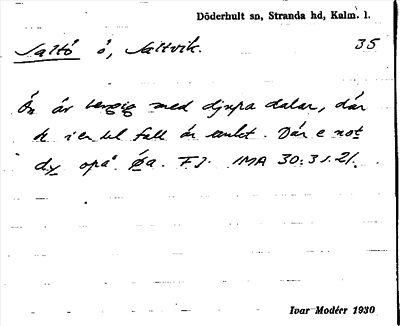 Döderhult sn, Stranda hd, Kalm. l.
Saltö ö, Saltvik. 35
Ön är bergig med djupa dalar, där
de i en del fall är Där e not
dy opå öa. F.J. IMA 30:31.21.
Ivar Modéer 1930